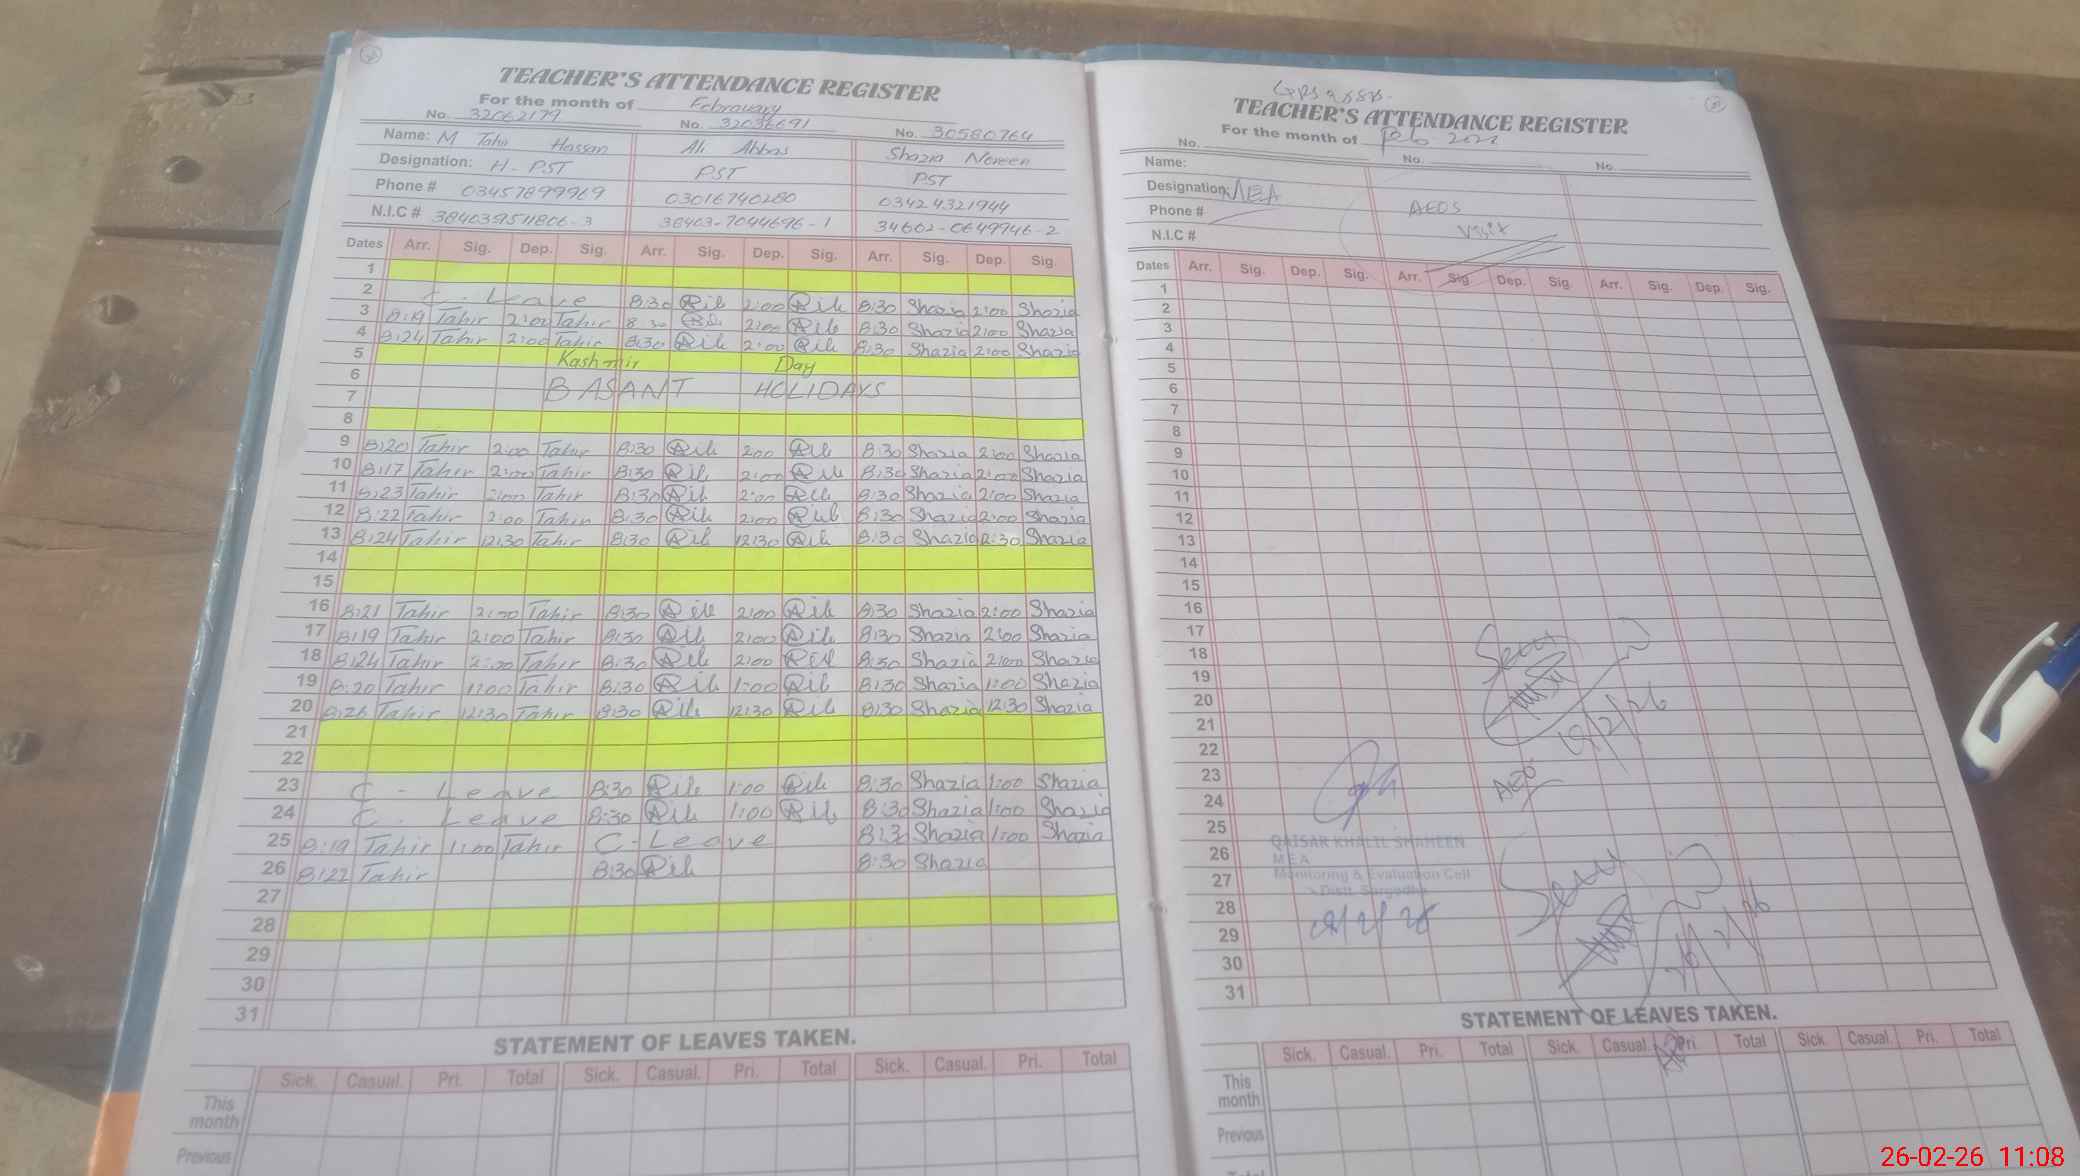 TEACHER'S ATTENDANCE REGISTER
For the month of Febrauary
No. 32062179 No. 32036691 No. 30580764
Name: M Tahir Hassan Ali Abbas Shazia Noreen
Designation: H-PST PST PST
Phone # 03457899969 03016740280 03424321944
N.I.C # 3840359511806-3 38403-7044696-1 34602-0649946-2
Dates Arr. Sig. Dep. Sig. Arr. Sig. Dep. Sig. Arr. Sig. Dep. Sig.
1
2 C - Leave 8:30 2:00 8:30 Shazia 2:00 Shazia
3 8:19 Tahir 2:00 Tahir 8 30 2:00 8:30 Shazia 2:00 Shazia
4 8:24 Tahir 2:00 Tahir 8:30 2:00 8:30 Shazia 2:00 Shazia
5 Kashmir Day
6
7 BASANT HOLIDAYS
8
9 8:20 Tahir 2:00 Tahir 8:30 2:00 8:30 Shazia 2:00 Shazia
10 8:17 Tahir 2:00 Tahir 8:30 2:00 8:30 Shazia 2:00 Shazia
11 8:23 Tahir 2:00 Tahir 8:30 2:00 8:30 Shazia 2:00 Shazia
12 8:22 Tahir 2:00 Tahir 8:30 2:00 8:30 Shazia 2:00 Shazia
13 8:24 Tahir 12:30 Tahir 8:30 12:30 8:30 Shazia 2:30 Shazia
14
15
16 8:21 Tahir 2:00 Tahir 8:30 2:00 8:30 Shazia 2:00 Shazia
17 8:19 Tahir 2:00 Tahir 8:30 2:00 8:30 Shazia 2:00 Shazia
18 8:24 Tahir 2:00 Tahir 8:30 2:00 8:30 Shazia 2:00 Shazia
19 8:20 Tahir 1:00 Tahir 8:30 1:00 8:30 Shazia 1:00 Shazia
20 8:26 Tahir 12:30 Tahir 8:30 12:30 8:30 Shazia 12:30 Shazia
21
22
23 C - Leave 8:30 1:00 8:30 Shazia 1:00 Shazia
24 C - Leave 8:30 1:00 8:30 Shazia 1:00 Shazia
25 8:19 Tahir 1:00 Tahir C-Leave 8:30 Shazia 1:00 Shazia
26 8:22 Tahir 8:30 8:30 Shazia
27
28
29
30
31
STATEMENT OF LEAVES TAKEN.
Sick. Casual. Pri. Total Sick. Casual. Pri. Total Sick. Casual. Pri. Total
This month
Previous
TEACHER'S ATTENDANCE REGISTER
For the month of Feb
No. No. No.
Name:
Designation: MEA AEOS
Phone # Visit
N.I.C #
Dates Arr. Sig. Dep. Sig. Arr. Sig. Dep. Sig. Arr. Sig. Dep. Sig.
1
2
3
4
5
6
7
8
9
10
11
12
13
14
15
16
17 Seen
18
19
20 19/2/26
21
22
23
24 AEO
25
QAISAR KHALIL SHAHEEN
26 MEA
27 Monitoring & Evaluation Cell
Distt. Sargodha
28 Seen
29
30
31
STATEMENT OF LEAVES TAKEN.
Sick. Casual. Pri. Total Sick. Casual. Pri. Total Sick. Casual. Pri. Total
This month
Previous
26-02-26 11:08